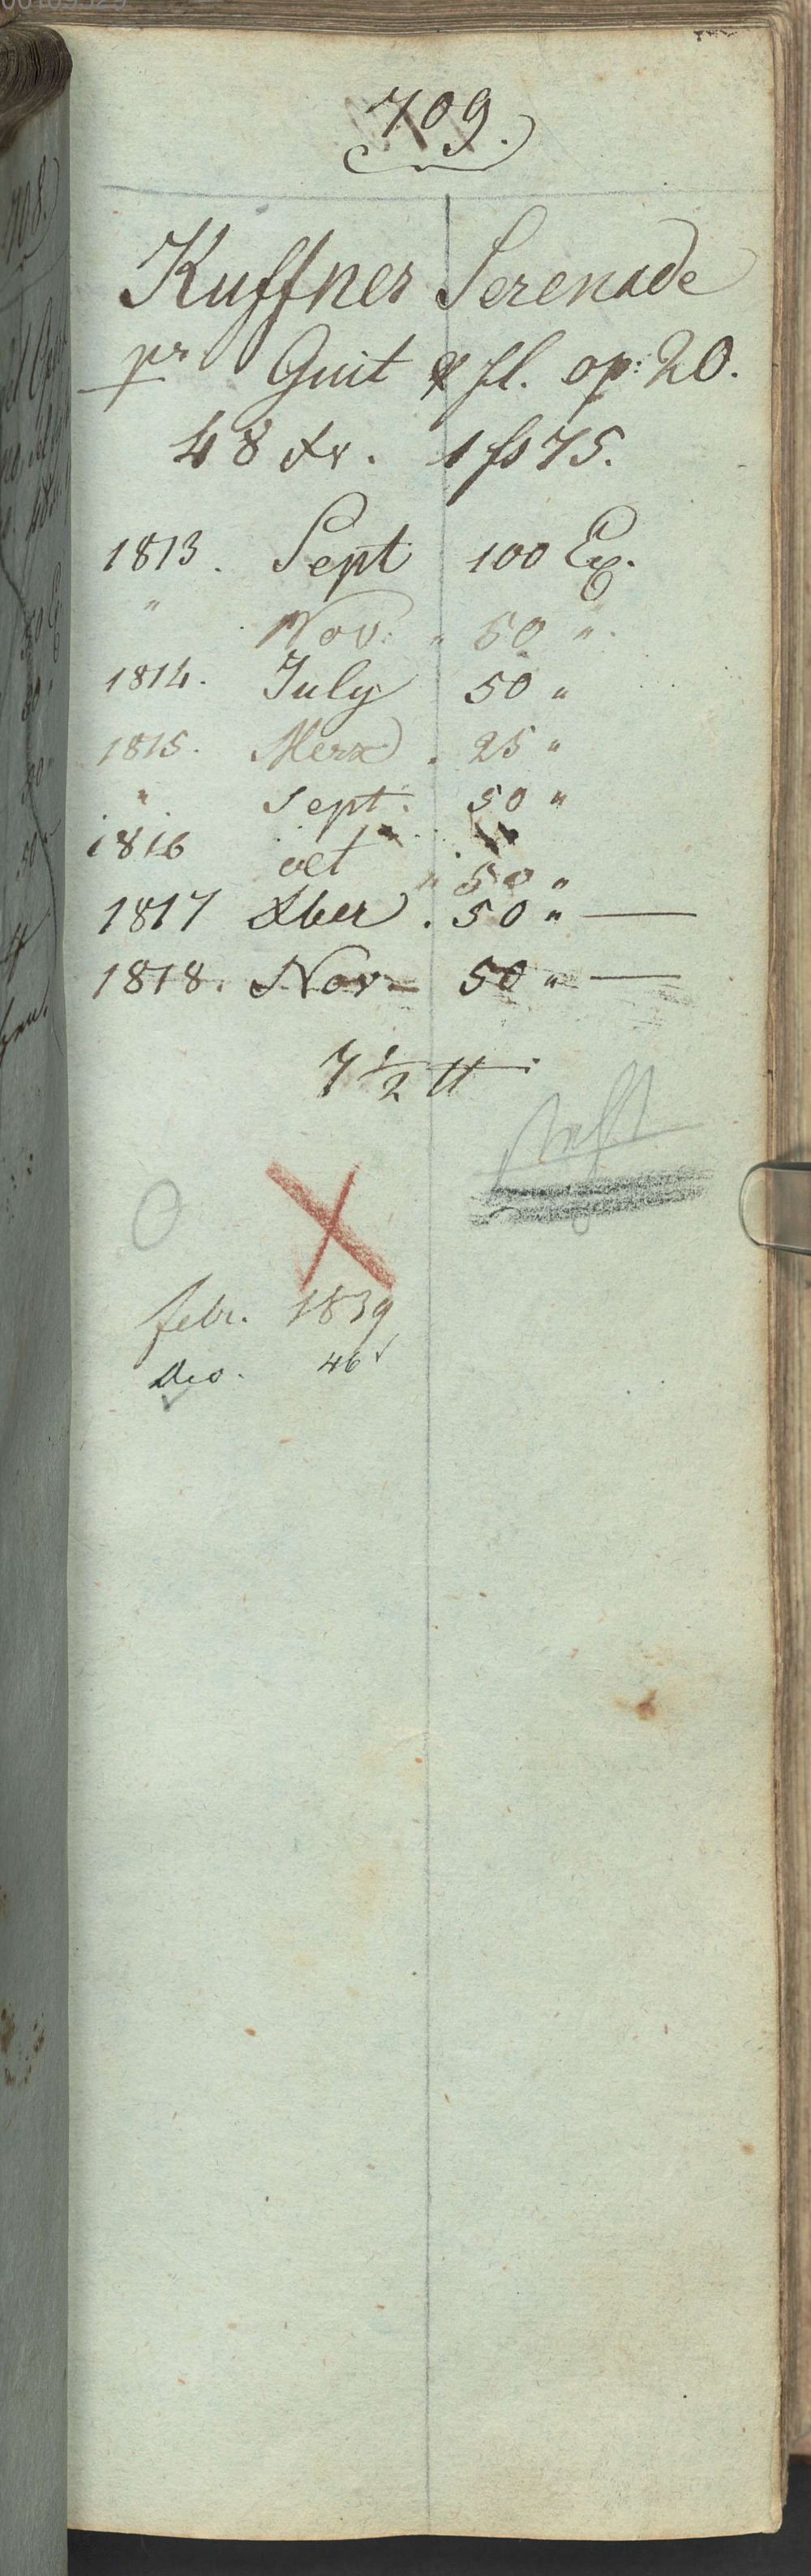 709.
Kuffner Serenade
pr Guit & fl. op: 20.
48 Xr. 1 fs 75.
1813. Sept 100 Ex.
" Nov. " 50 "
1814. July 50 "
1815. Merz . 25 "
" Sept. 50 "
1816 oct " 50 "
1817 Xber . 50 " —
1818. Nov 50 " —
7 1/2 tt
febr. 1839
Dec. 46